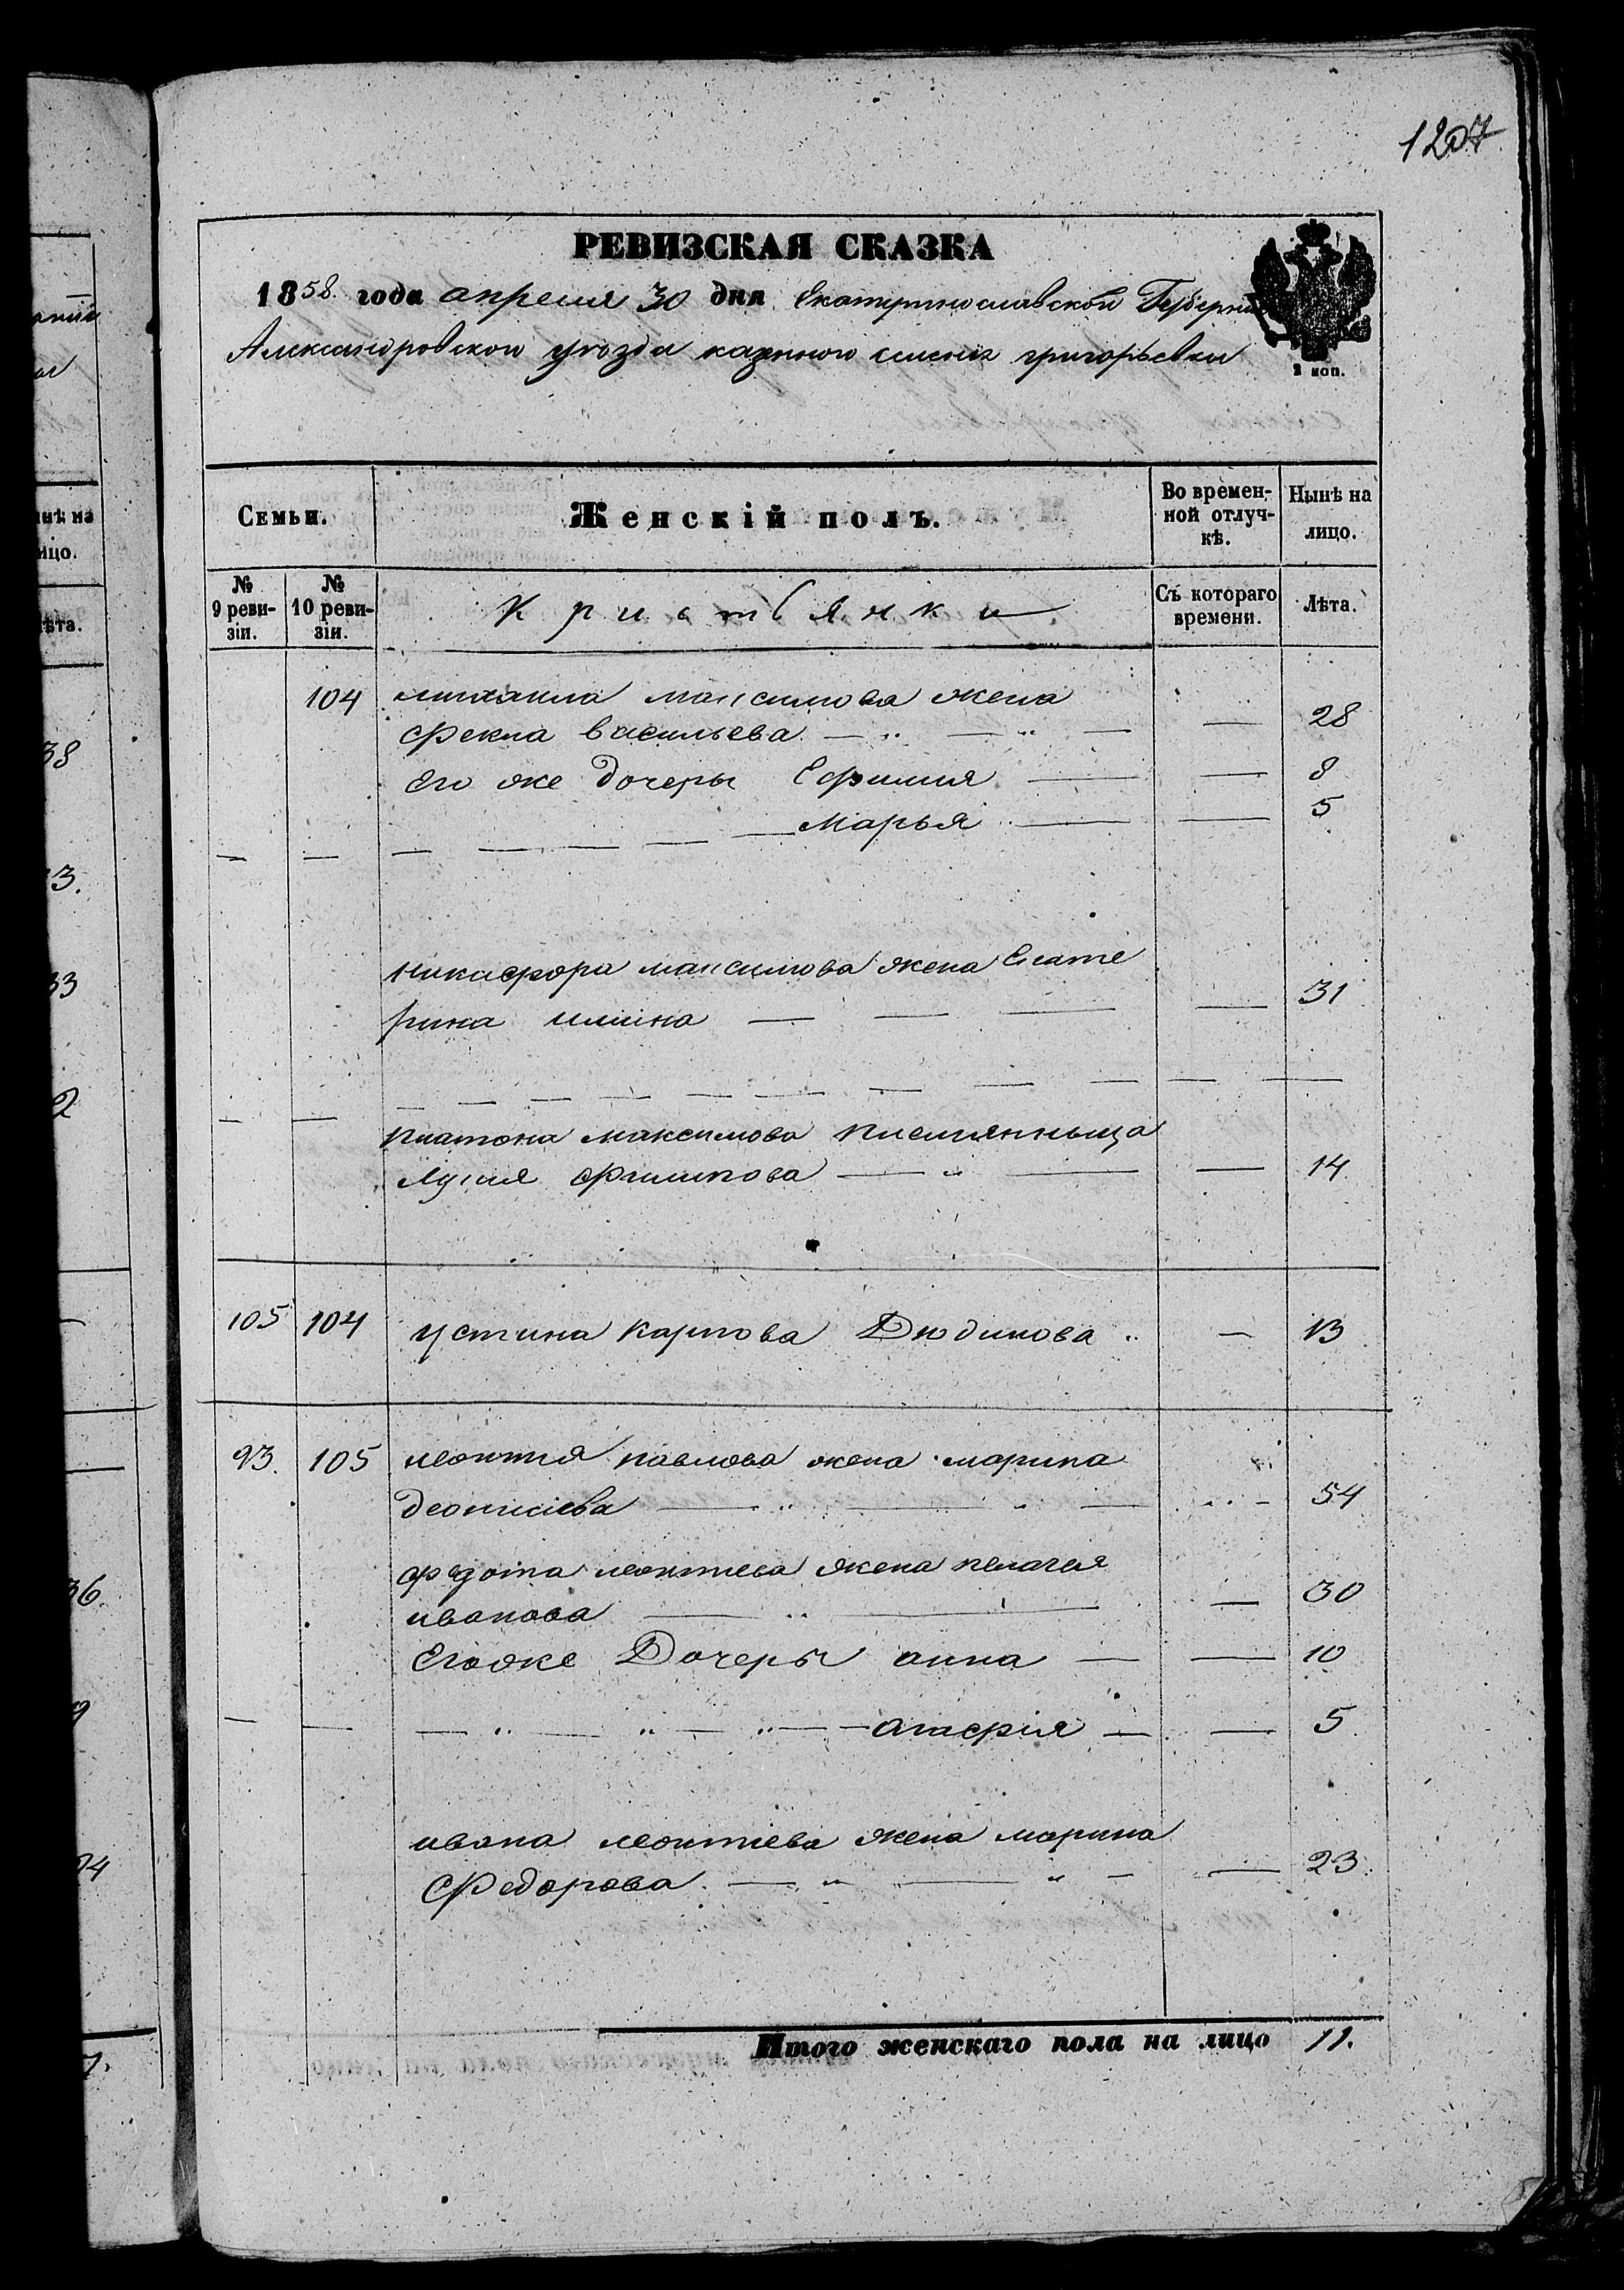 1207
РЕВИЗСКАЯ СКАЗКА
1858 года апреля 30 дня Екатеринославской Губернии
Александровскои уезда казенного селения григорьевки
2 коп.
Семьи. Женскій полъ. Во времен-ной отлуч-кѣ. Нынѣ на лицо.
№ 9 реви-зіи. № 10 реви-зіи. Кристьянки Съ котораго времени. Лѣта.
104 михаила максимова жена
фекла васильева 28
Его же дочеры Ефимия 8
марья 5
никифора максимова жена Екате
рина илина 31
платона максимова племянныца
лукия филипова 14
105 104 устина карпова Дюдикова 13
93. 105 леонтия павлова жена марина
деонисіева 54
федота леонтиева жена пелагея
иванова 30
Егоже Дочеры анна 10
агафія 5
ивана леонтиева жена марина
Федорова 23
Итого женскаго пола на лицо 11.